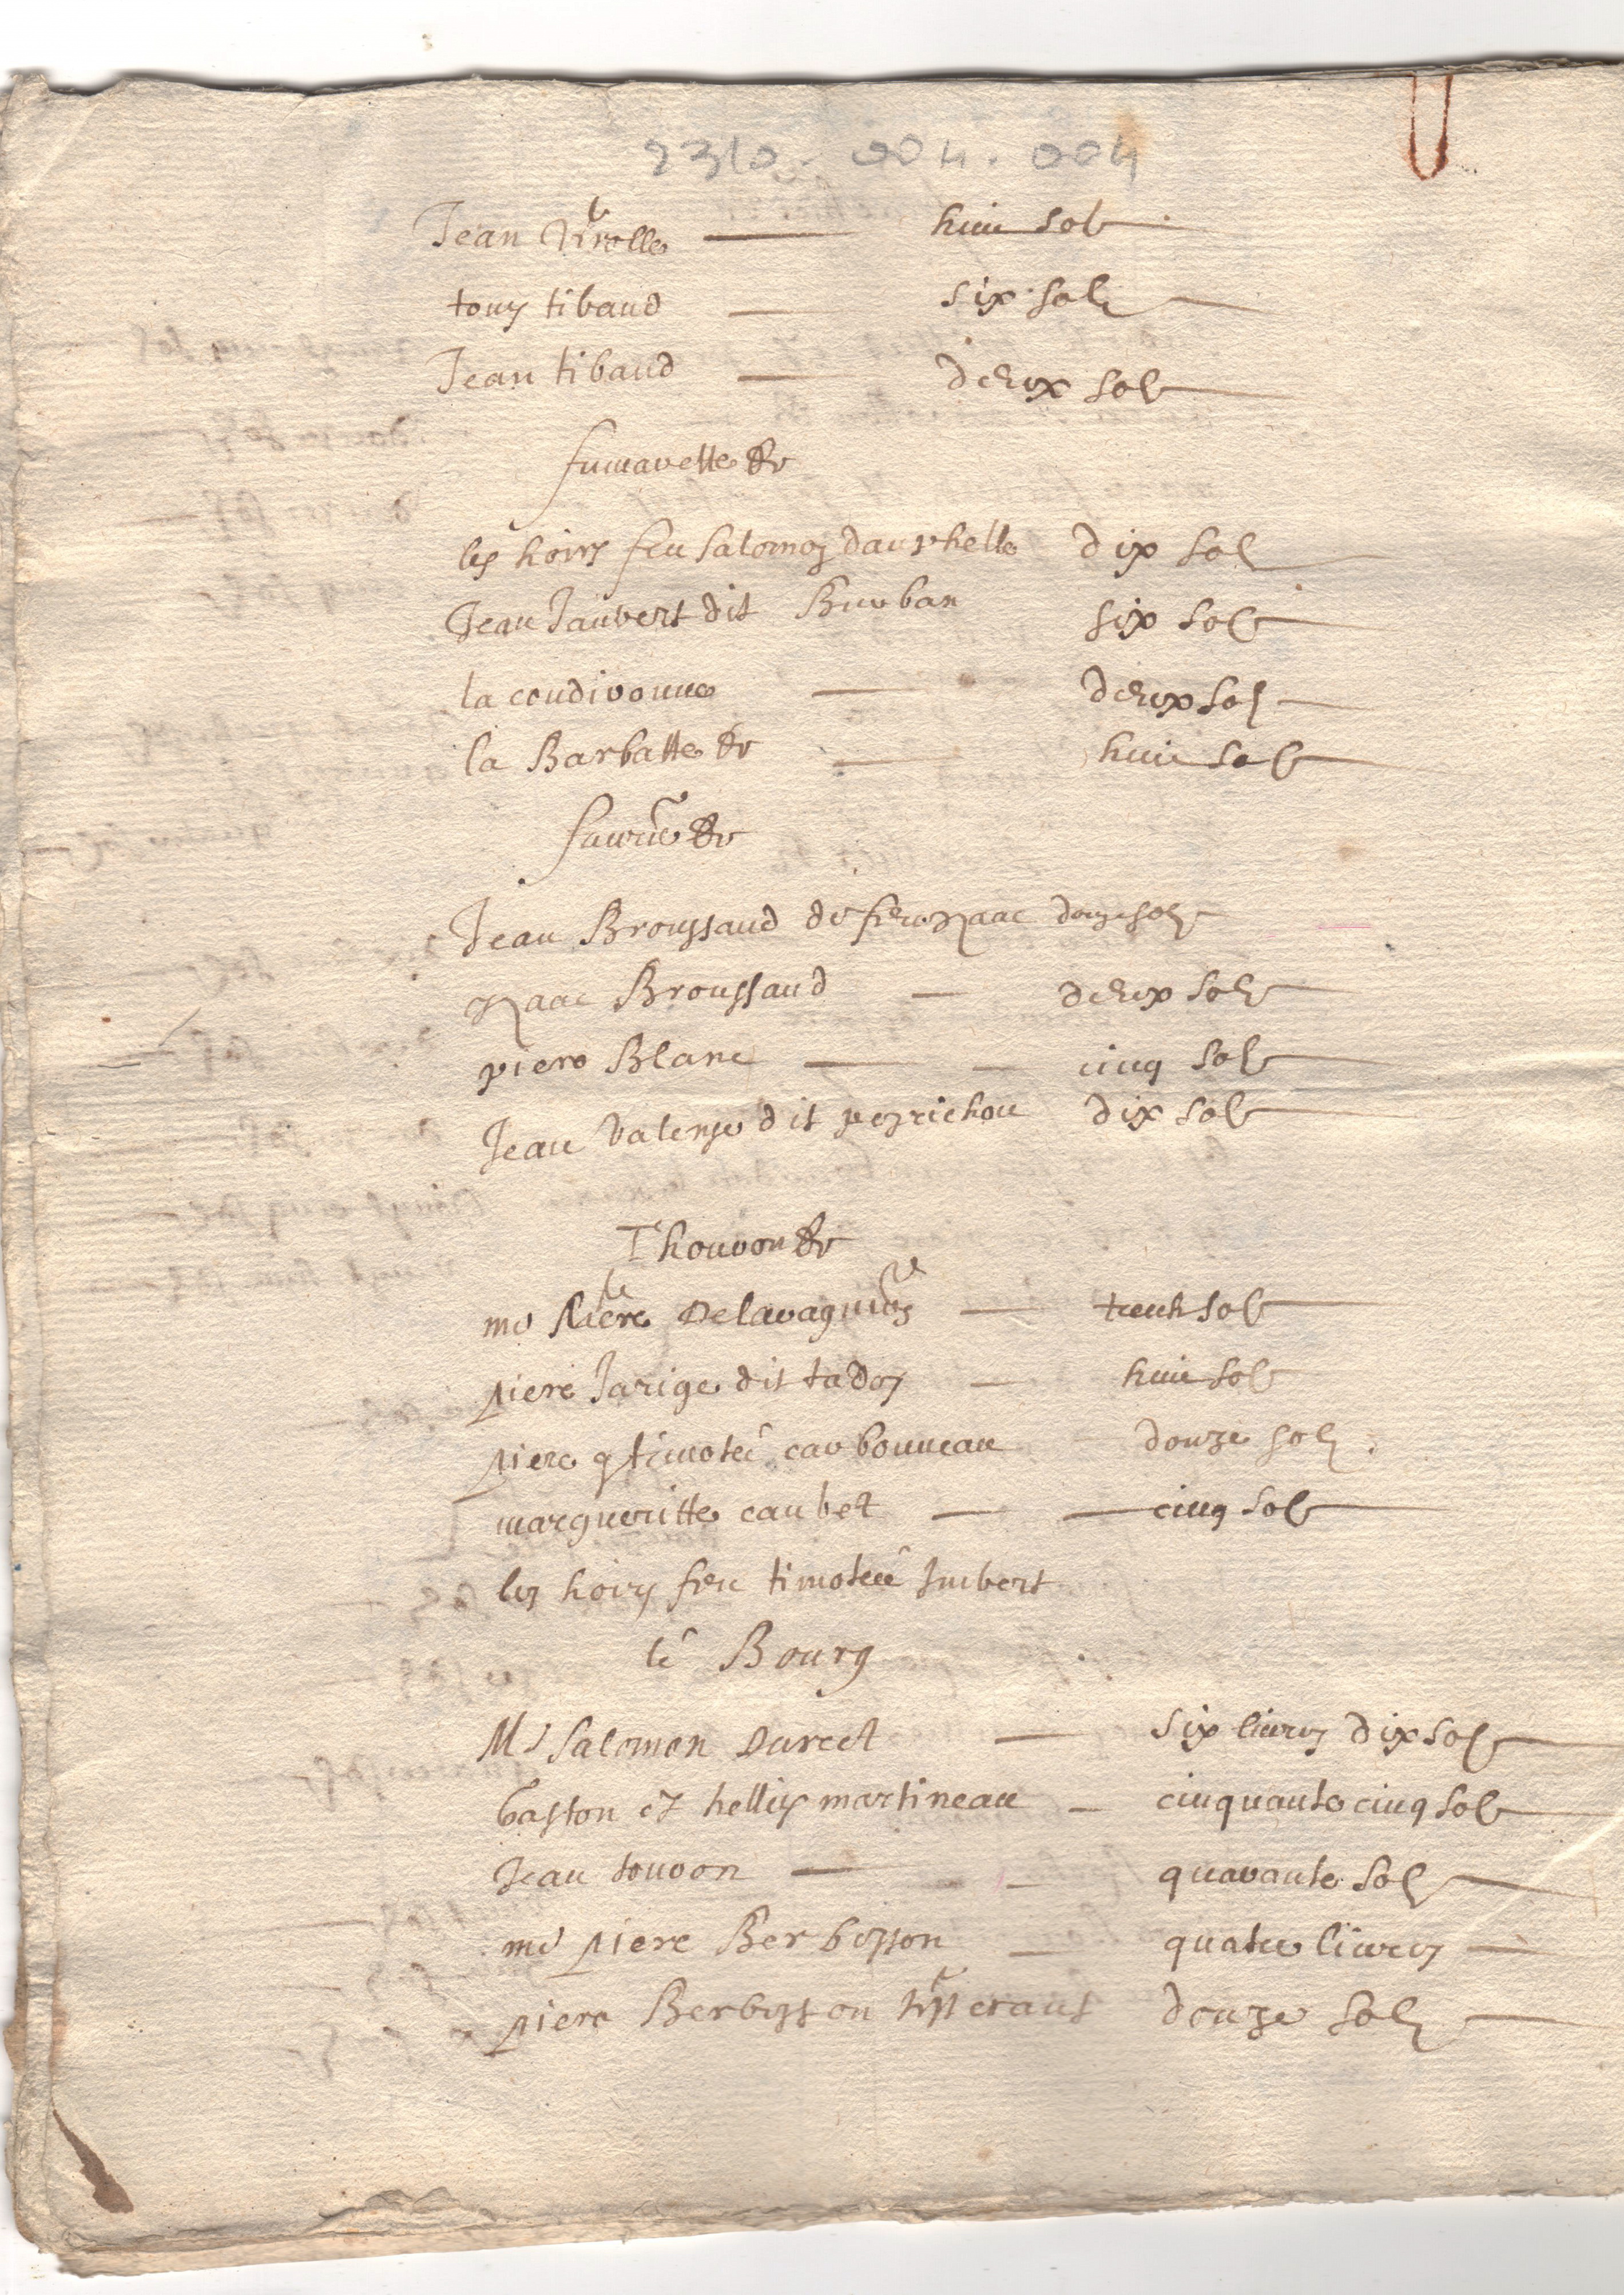 2310. 004. 004
Jean huit sols
tony tibaud six sols
Jean tibaud deux sols
fumarette &c
les hoirs feu Salomon dauphelle dix sols
Jean Jaubert dit Burban six sols
la coudivonne deux sols
la Barbatte &c huit sols
&c
Jean Broussaud de feu yzaac douze sols
yzaac Broussaud deux sols
piere Blanc cinq sols
Jean Valense dit dix sols
Thouron &c
me piere Delavagnion sols
piere Jarige dit tadoy huit sols
piere q timoteé carbonneau douze sols
margueritte caubet cinq sols
les hoirs feu timoteé Imbert
lé Bourg
Mr Salomon Darect six livres dix sols
gaston et hellies martineau cinquante cinq sols
Jean touron quarante sols
me piere Berbesson quatre livres
piere Berbesson tisserant douze sols